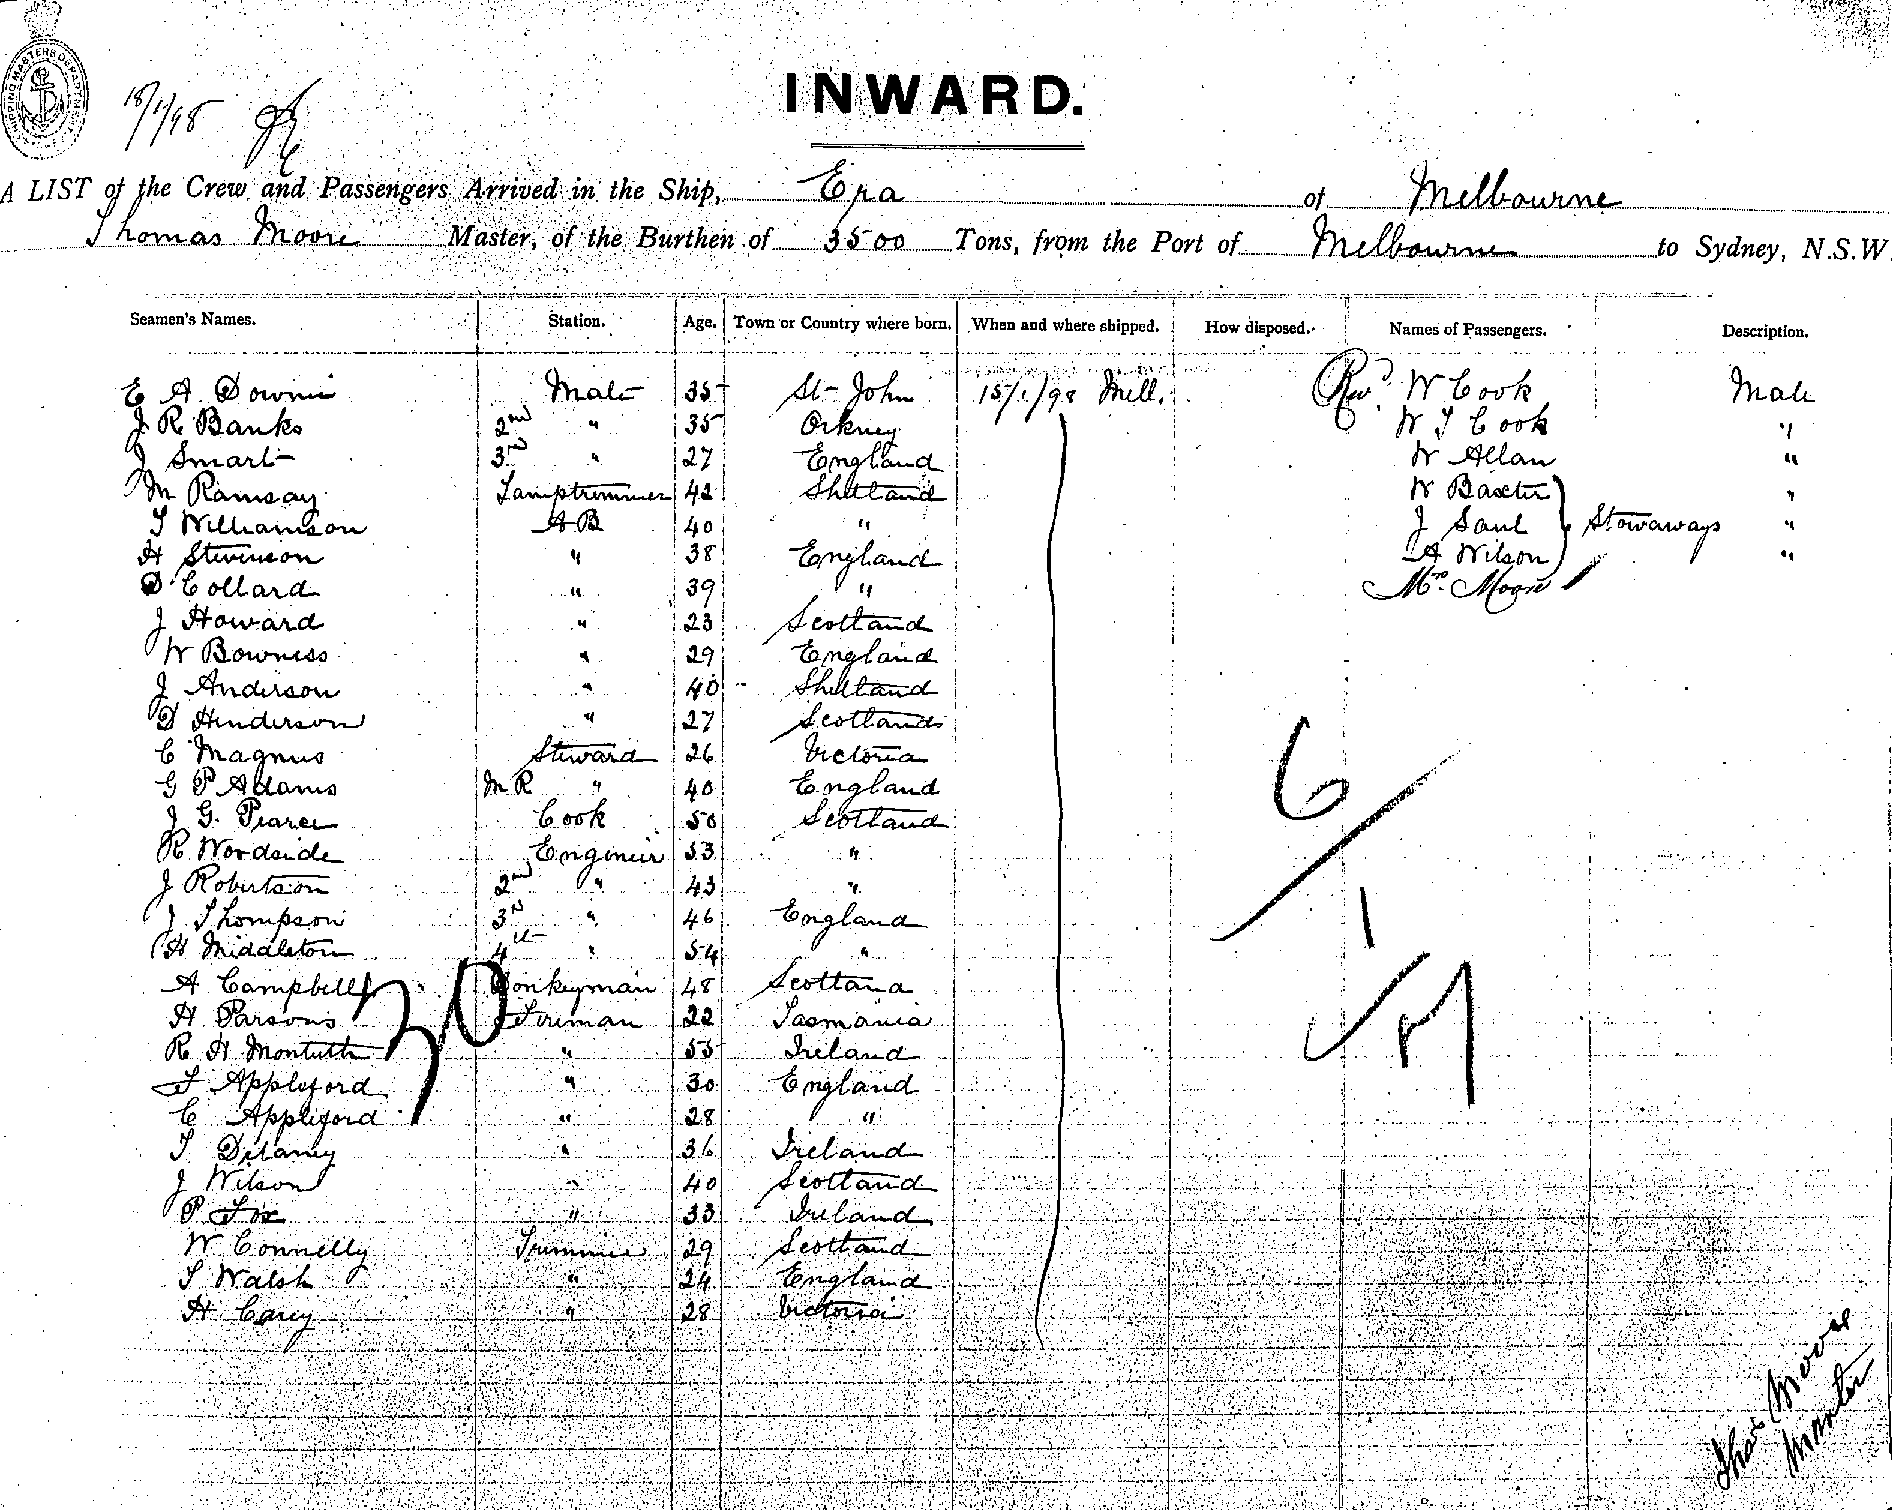 SHIPPING MASTERS DEPARTMENT
18/1/98
INWARD.
A LIST of the Crew and Passengers Arrived in the Ship, Era of Melbourne
Thomas Moore Master, of the Burthen of 3500 Tons, from the Port of Melbourne to Sydney, N.S.W.
Seamen's Names. Station. Age. Town or Country where born. When and where shipped. How disposed. Names of Passengers. Description.
E A Downie Mate 35 St John 15/1/98 Mell. Revd. W Cook Male
J R Banks 2nd " 35 Orkney W T Cook "
J Smart 3rd " 27 England W Allan "
M Ramsay Lamptrimmer 42 Shetland W Baxter "
T Williamson A B 40 " J Saul Stowaways "
H Stevenson " 38 England A Wilson "
D Collard " 39 " Mrs. Moore
J Howard " 23 Scotland
W Bowness " 29 England
J Anderson " 40 Shetland
D Henderson " 27 Scotland
C Magnus Steward 26 Victoria
G P Adams M R " 40 England
J G. Pearce Cook 50 Scotland
R Woodside Engineer 53 "
J Robertson 2nd " 43 "
J Thompson 3rd " 46 England
H Middleton 4th " 54 "
A Campbell Donkeyman 48 Scotland
H Parsons Fireman 22 Tasmania
R H Monteith " 55 Ireland
F Appleford " 30 England
C Appleford " 28 "
T Delaney " 36 Ireland
J Wilson " 40 Scotland
P Fox " 33 Ireland
W Connelly Trimmer 29 Scotland
T Walsh " 24 England
H Carey " 28 Victoria
30
6
1
Thos Moore
Master